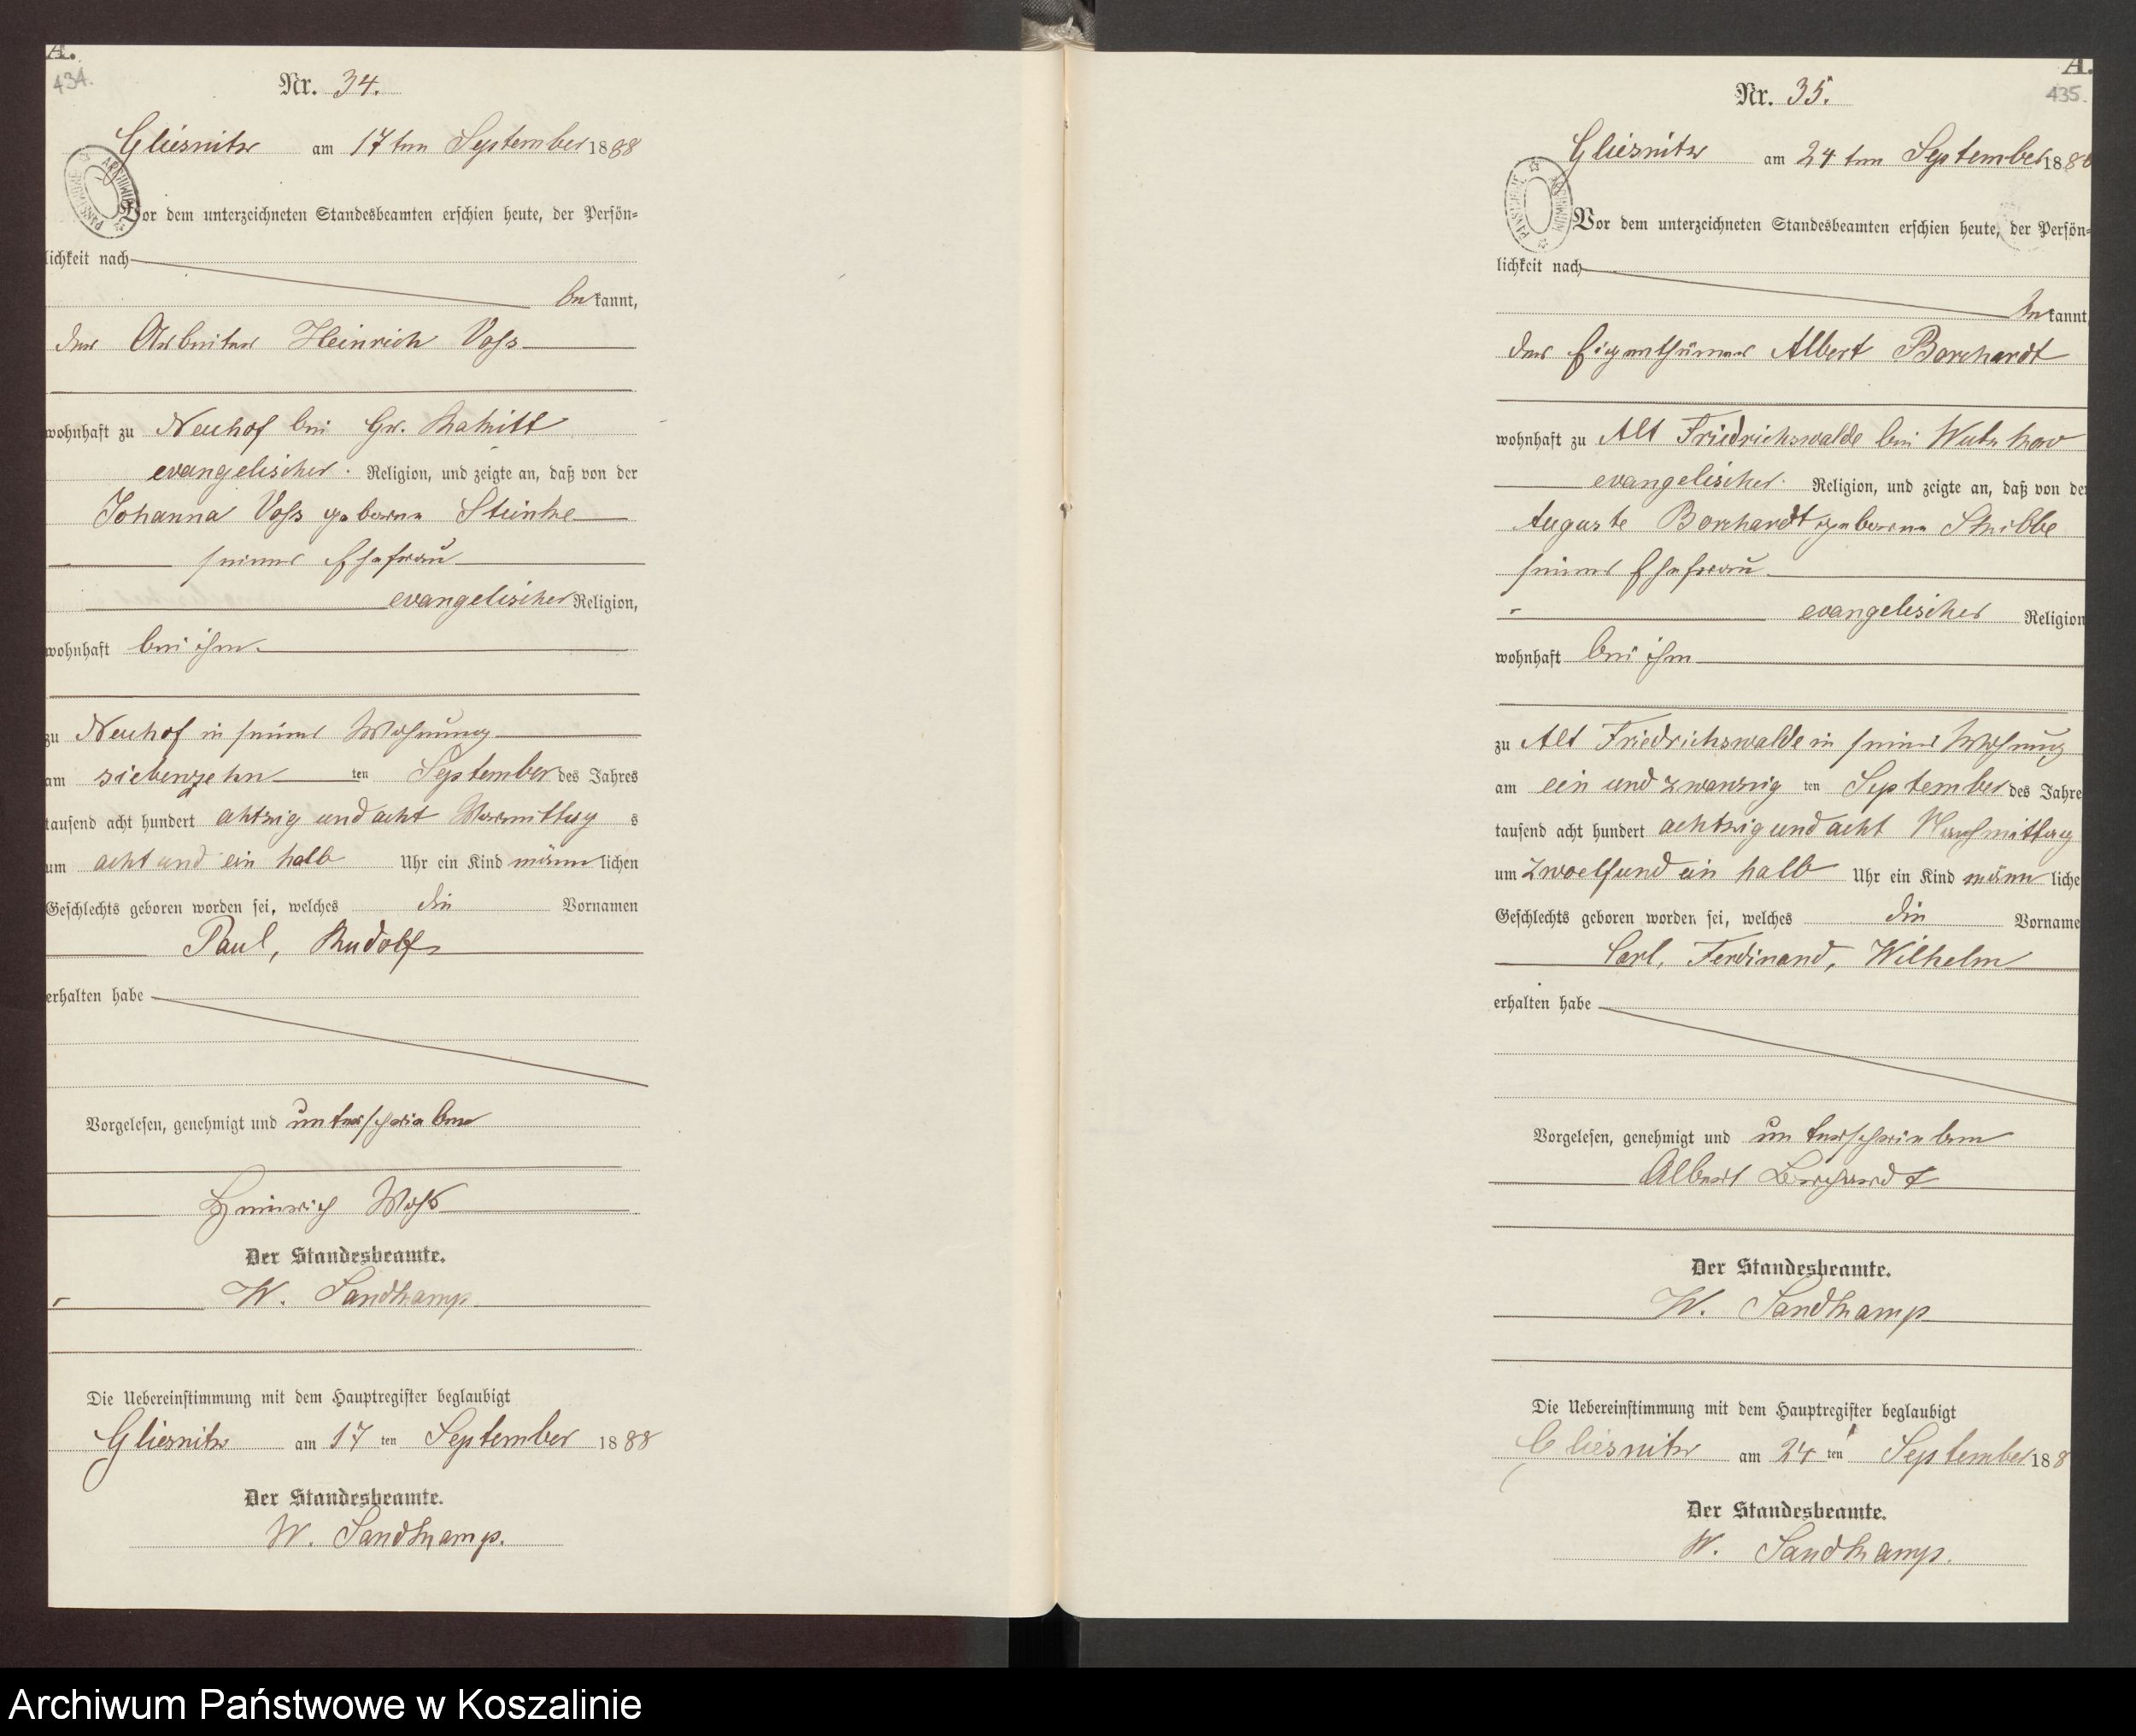 A.
434.
Nr. 34.
Gliesnitz am 17ten September 1888
Vor dem unterzeichneten Standesbeamten erschien heute, der Persön=
lichkeit nach
bekannt,
der Arbeiter Heinrich Voss
wohnhaft zu Neuhof bei Gr. Rakitt
evangelischer Religion, und zeigte an, daß von der
Johanna Voss geborne Steinke
seiner Ehefrau
evangelischer Religion,
wohnhaft bei ihm
zu Neuhof in seiner Wohnung
am siebenzehn ten September des Jahres
tausend acht hundert achtzig und acht Vormittag s
um acht und ein halb Uhr ein Kind männlichen
Geschlechts geboren worden sei, welches die Vornamen
Paul, Rudolf
erhalten habe
Vorgelesen, genehmigt und unterschrieben
Heinrich Voss
Der Standesbeamte.
W. Sandkamp
Die Uebereinstimmung mit dem Hauptregister beglaubigt
Gliesnitz am 17 ten September 1888
Der Standesbeamte.
W. Sandkamp.
A.
435.
Nr. 35.
Gliesnitz am 24ten September 188
Vor dem unterzeichneten Standesbeamten erschien heute, der Persön=
lichkeit nach
bekannt
der Eigenthümer Albert Borchardt
wohnhaft zu Alt Friedrichswalde bei Wutzkow
evangelischer Religion, und zeigte an, daß von der
Auguste Borchardt geborne Skibbe
seiner Ehefrau
evangelischer Religion
wohnhaft bei ihm
zu Alt Friedrichswalde in seiner Wohnung
am ein und zwanzig ten September des Jahre
tausend acht hundert achtzig und acht Nachmittag
um zwoelf und ein halb Uhr ein Kind männliche
Geschlechts geboren worden sei, welches die Vorname
Carl, Ferdinand, Wilhelm
erhalten habe
Vorgelesen, genehmigt und unterschrieben
Albert Borchardt
Der Standesbeamte.
W. Sandkamp
Die Uebereinstimmung mit dem Hauptregister beglaubigt
Gliesnitz am 24 ten September 188
Der Standesbeamte.
W. Sandkamp.
Archiwum Państwowe w Koszalinie